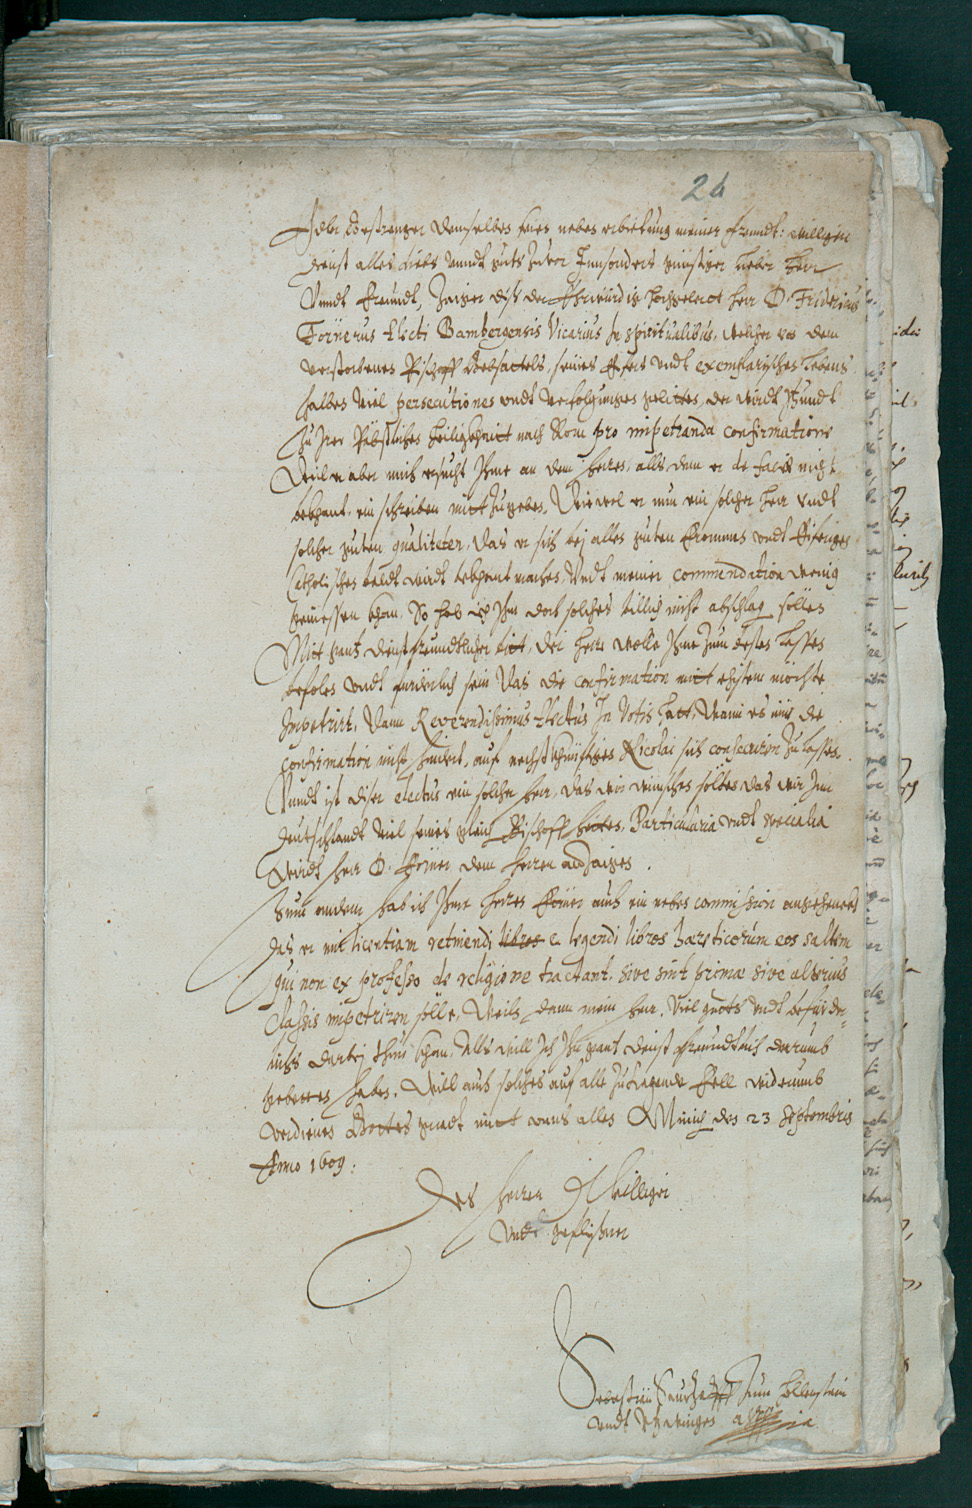 24
Edler Gestrenger demselben seien neben erbietung meiner freundt: willigen
dienst alles liebs unndt guets zuvor Innsonders günstiger lieber Herr
Unndt Freundt, Zaiger diß der Ehrwürdig hochgelert Herr D. Fridericus
Fornerus Electi Bambergensis Vicarius In spiritualibus, welcher vor dem
verstorbenen Bischoff seines Eyfers undt exemplarischen lebens
halben viel persecutiones undt verfolgungen gelitten, der wirdt
zu Irer Päbstlichen heiligkheitt nach Rom pro impetranda confirmatione
Weil er aber mich ersucht Ihme an den Herren, alls dem er de facie nicht
bekhant, ein schreiben mitt zu geben, Wiewol er nun ein solcher Herr undt
solcher guten qualiteten, das er sich bej allen guten frommen undt Eiferigen
Catholischen selbst wirdt bekhant machen, undt meiner commendation wenig
geniessen khan, So hab ich Ihm doch solches billich nicht abschlagen sollen
Mitt gantz dienstfreundtlicher bitt, der Herr wolle Ihme zum besten lassen
befolen undt fürderlich sein das die confirmation mitt ehistem möchte
Impetrirt, Dann Reverendissimus Electus In Votis hatt, wann es nur die
confirmation nicht hindert, auf nechstkhünfftiges Nicolai sich consecrirn zu lassen.
Unndt ist diser electus ein solcher Herr, das wir wünschen sollten, das wir Inn
Deutschlandt viel seines gleich Bischoff hetten, Particularia undt specialia
wirdt Herr D. Förner dem Herren anzaigen.
Zum andern hab ich Ihme Herren Förner auch ein neben commission angehenckt
das er mir licentiam retinendi libros et legendi libros haereticorum eos saltem
qui non ex professo de religione tractant, sive sint primae sive alterius
classis impetrirn solle, Weils dann mein Herr, viel guets undt befürder-
lichs darbej thun khan, Alls will Ich Ihn gantz dienstfreundtlich darumb
gebetten haben, Will auch solches auf alle zutragende Fell widerumb
verdienen Gottes gnadt mitt unns allen München den 23 Septembris
Anno 1609:
Des Herren Williger
undt geflißner
Sebastian zum
undt